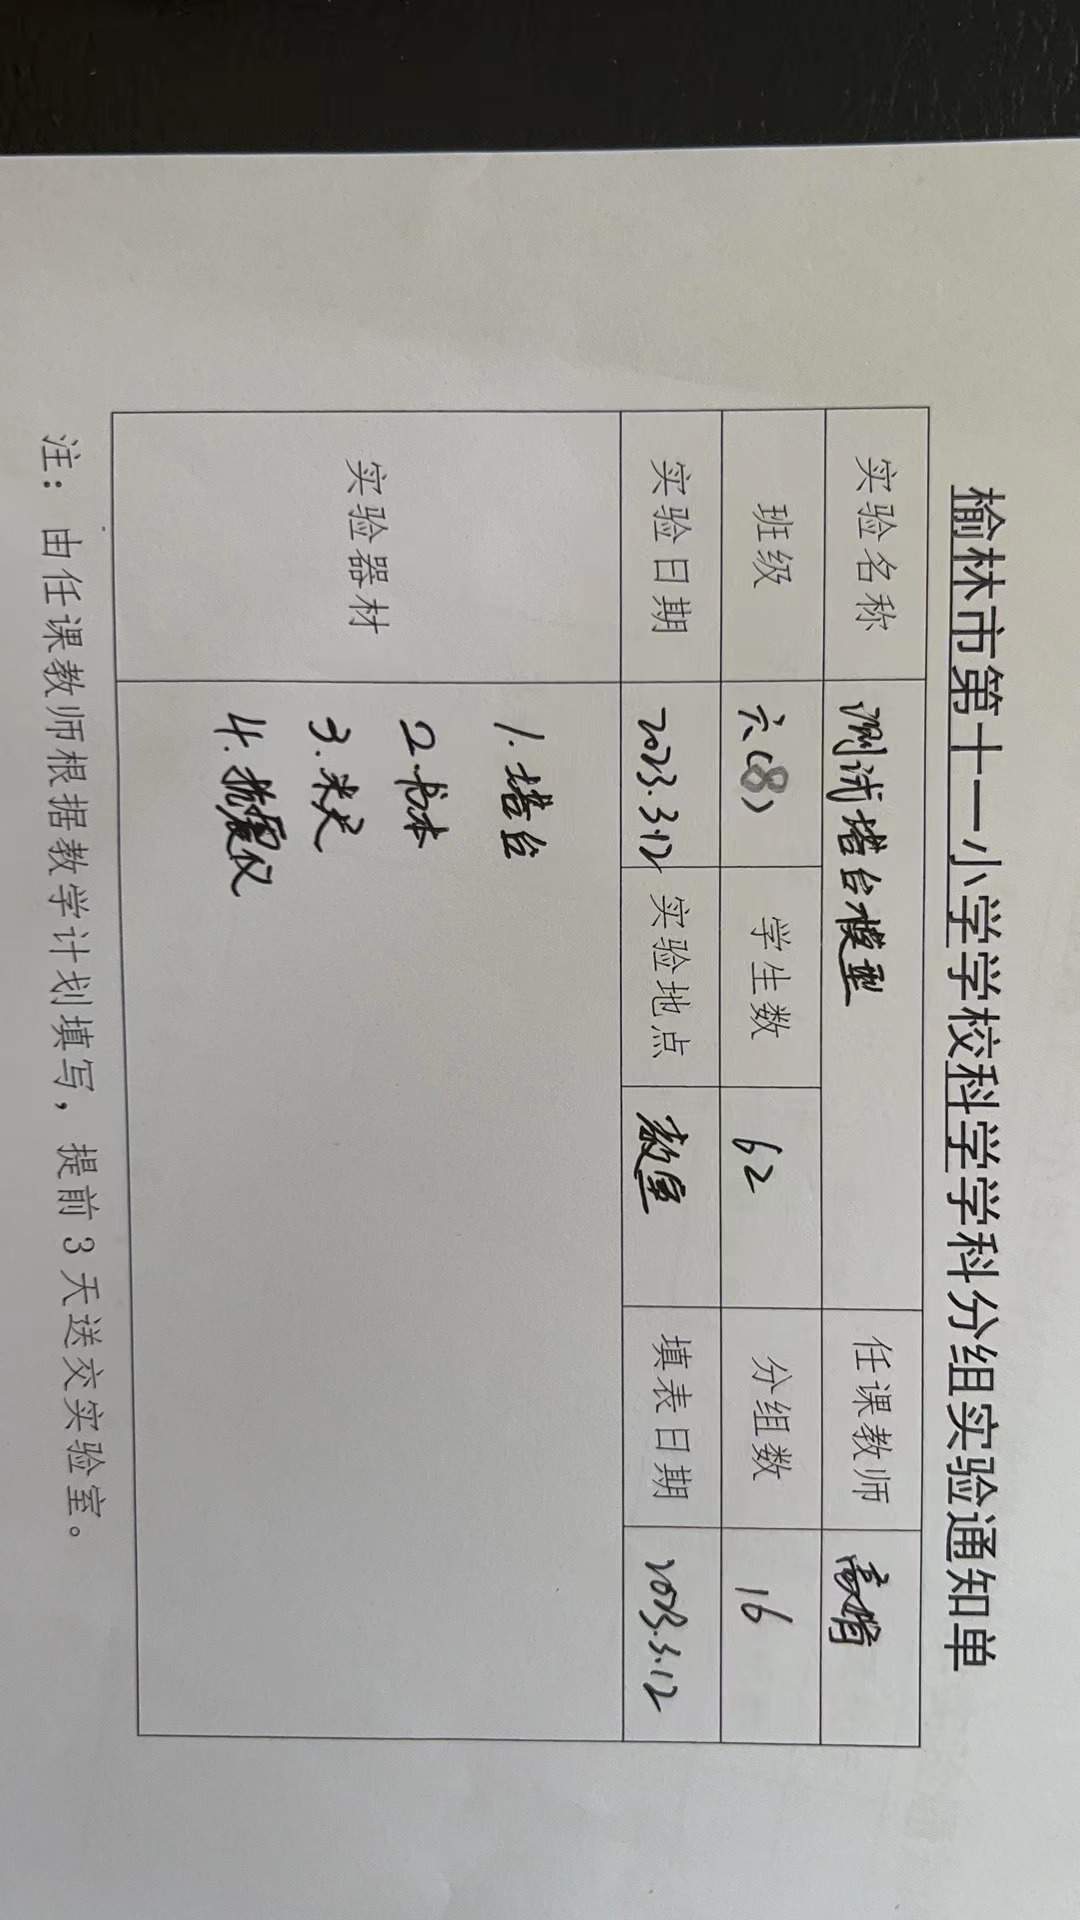 榆林市第十一小学学校科学学科分组实验通知单
实验名称 测试塔台模型 任课教师 高娟
班级 六(8) 学生数 62 分组数 16
实验日期 2023.3.12 实验地点 教室 填表日期 2023.3.12
实验器材 1.塔台
2.书本
3.米尺
4.抗震仪
注：由任课教师根据教学计划填写，提前3天送交实验室。